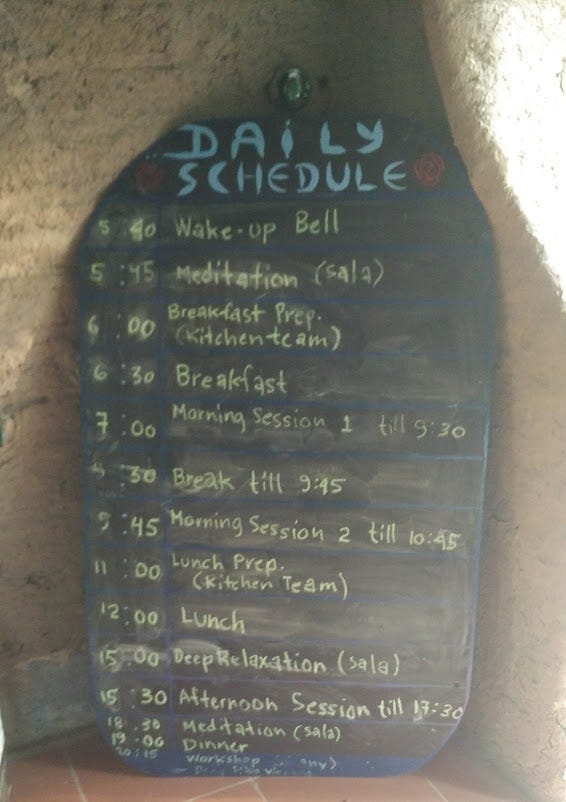 DAILY
SCHEDULE
5 40 Wake-up Bell
5 :45 Meditation (sala)
6 : 00 Breakfast Prep.
(Kitchen team)
6 :30 Breakfast
7 :00 Morning Session 1 till 9:30
9 :30 Break till 9:45
9 :45 Morning Session 2 till 10:45
11 : 00 Lunch Prep.
(Kitchen Team)
12 :00 Lunch
15 :00 Deep Relaxation (sala)
15 : 30 Afternoon Session till 17:30
18 .30 Meditation (sala)
19 :00 Dinner
20:15 Workshop